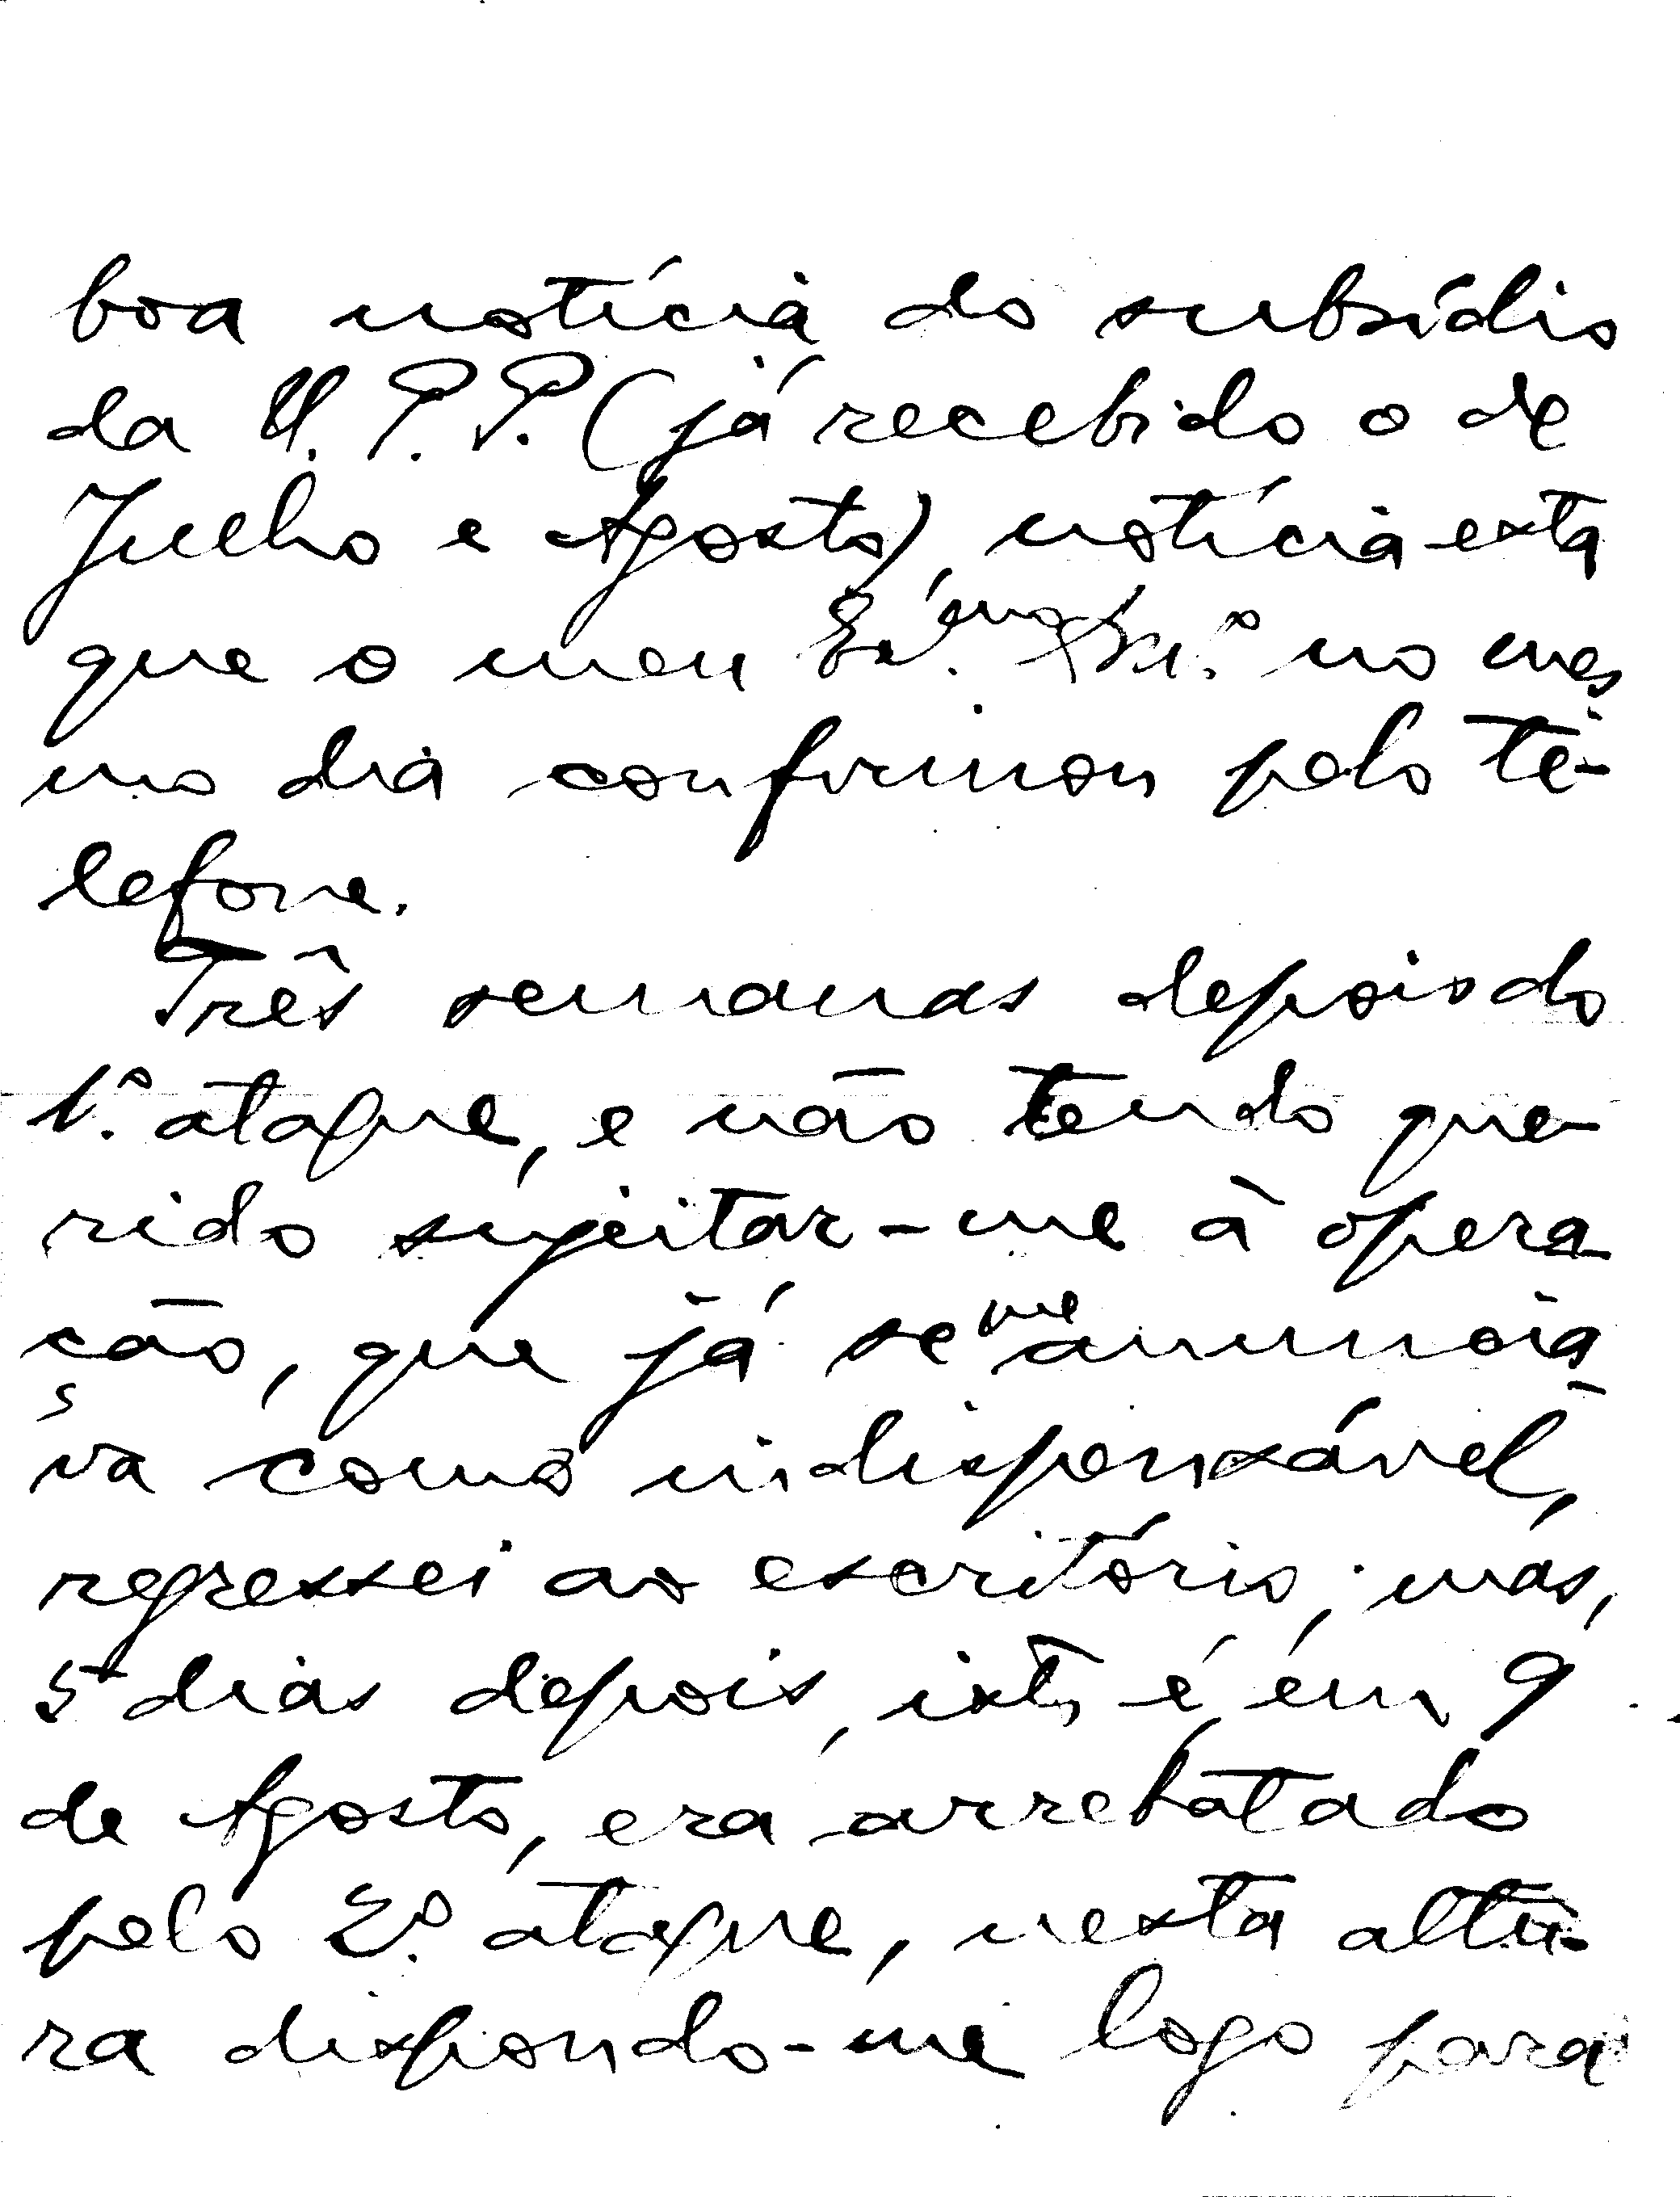 boa notícia do subsídio
da U.P.P. (já recebido o de
Julho e Agosto), notícia esta
que o meu Ex.mo no mes
mo dia confirmou pelo te-
lefone.
Três semanas depois do
1.º ataque, e não tendo que-
rido sujeitar-me à opera
ção, que já se me anuncia
va como indispensável,
regressei ao escritório; mas,
5 dias depois, isto é, em 9
de Agosto, era arrebatado
pelo 2.º ataque, nesta altu-
ra dispondo-me logo para